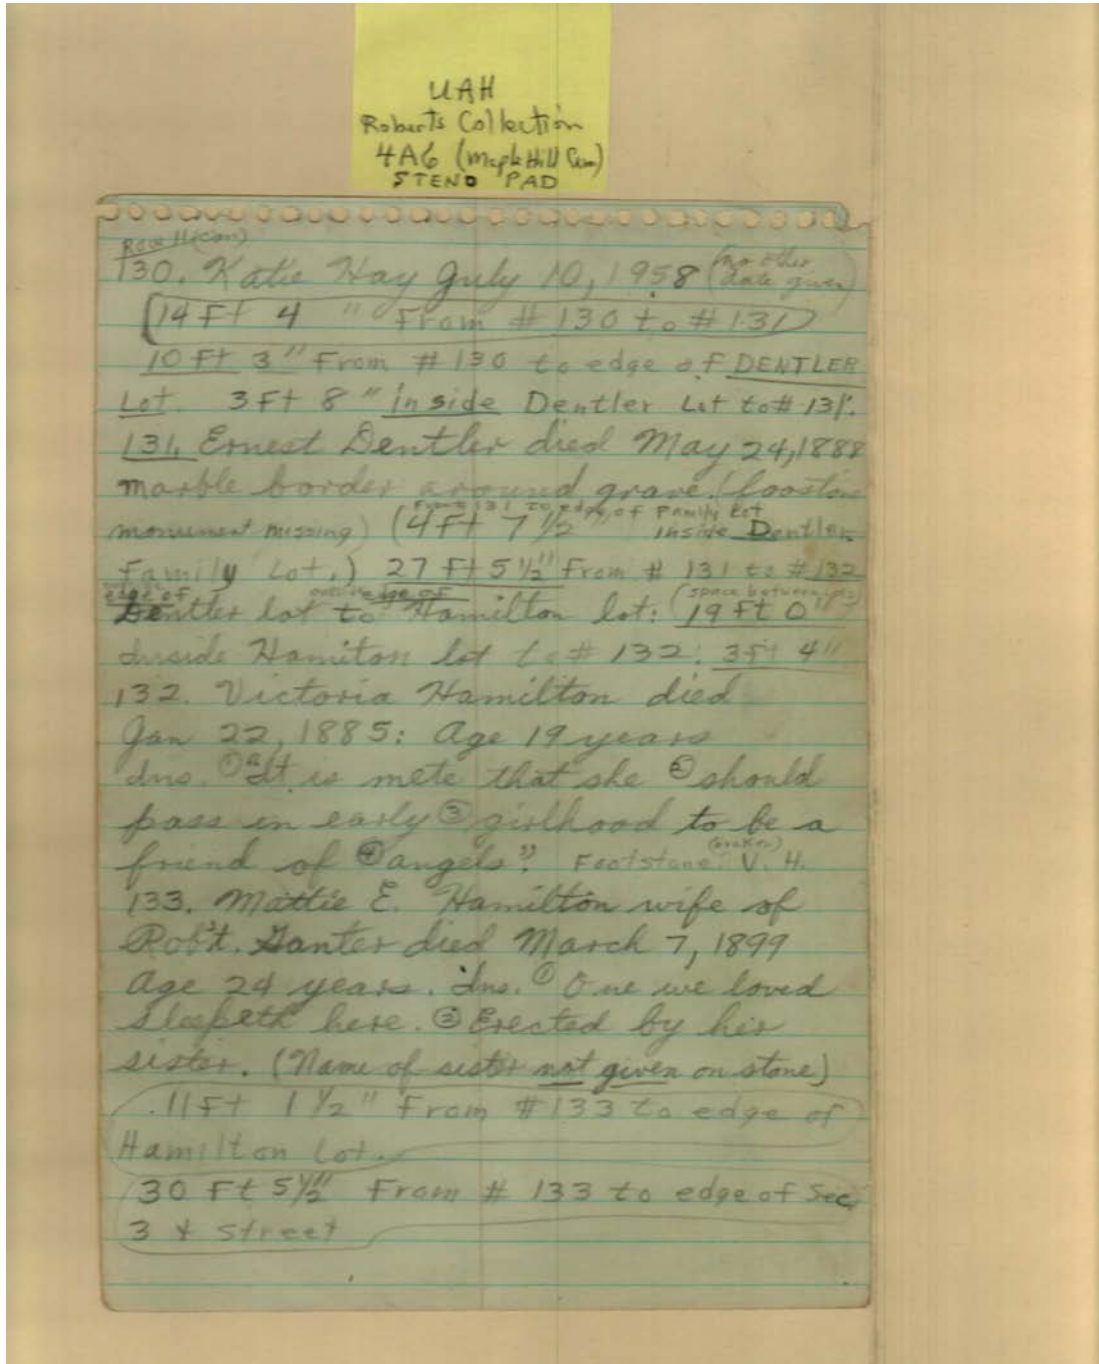 UAH
Roberts Collection
4A6 (Maple Hill Cem)
STENO PAD
Row 11 (con)
130. Katie Hay July 10, 1958 (no other date given)
14 Ft 4 " From # 130 to # 131
10 Ft 3" From # 130 to edge of DENTLER
Lot. 3 Ft 8 " inside Dentler Lot to # 131.
131. Ernest Dentler died May 24, 1888
marble border around grave. (
monument missing) (4 Ft 7 1/2 From # 131 to edge of Family Lot inside Dentler
Family Lot.) 27 Ft 5 1/2" From # 131 to # 132
edge of Dentler lot to outside edge of Hamilton lot: (space between) 19 Ft 0"
Inside Hamiton lot to # 132: 3 Ft 4"
132. Victoria Hamilton died
Jan 22, 1885: Age 19 years
Ins. ① "It is mete that she ② should
pass in early ③ girlhood to be a
friend of ④ angels". Footstone: (broken) V. H.
133. Mattie E. Hamilton wife of
Rob't. Ganter died March 7, 1899
Age 24 years. Ins. ① One we loved
sleepeth here. ② Erected by her
sister. (Name of sister not given on stone)
11 Ft 1 1/2" From # 133 to edge of
Hamilton Lot.
30 Ft 5 1/2" From # 133 to edge of Sec.
3 & Street